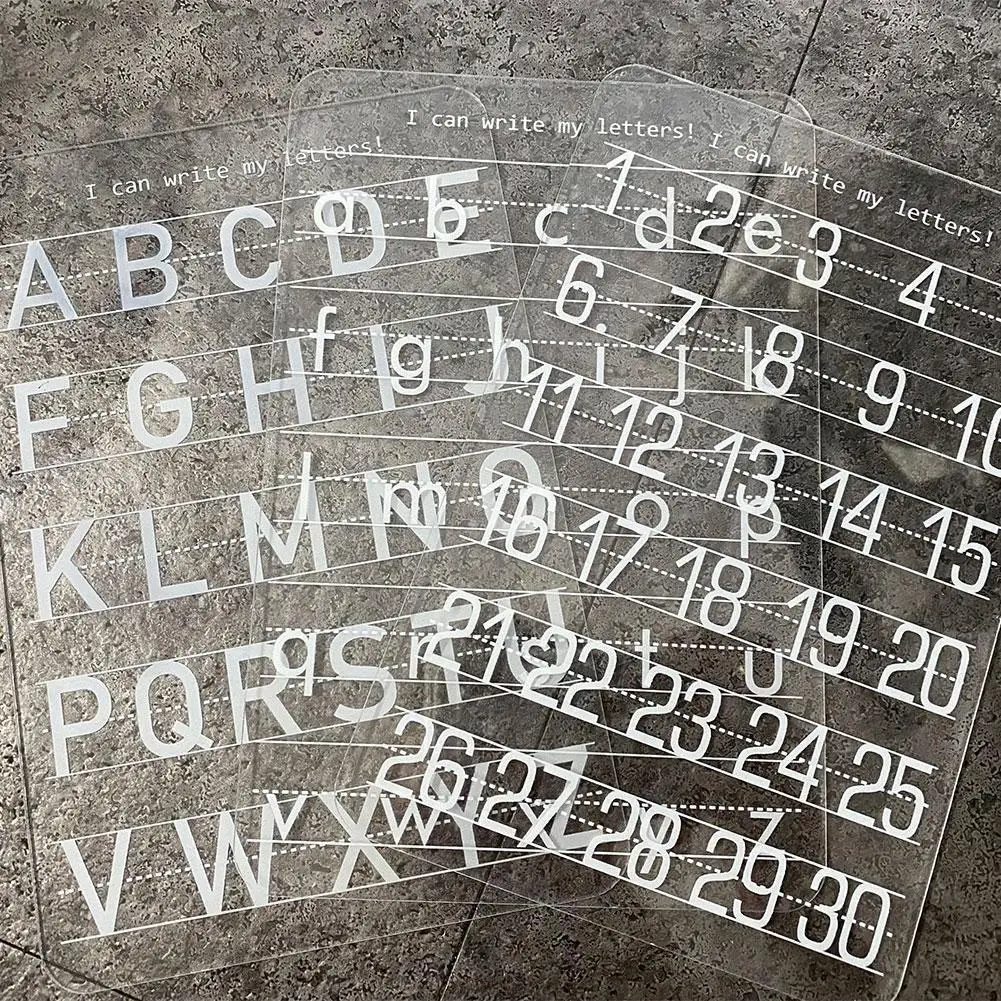 I can write my letters!
A B C D E
F G H I J
K L M N O
P Q R S T U
V W X Y Z
I can write my letters!
a b c d e
f g h i j k
l m n o p
q r s t u
v w x y z
I can write my letters!
1 2 3 4
6. 7 8 9 10
11 12 13 14 15
16 17 18 19 20
21 22 23 24 25
26 27 28 29 30